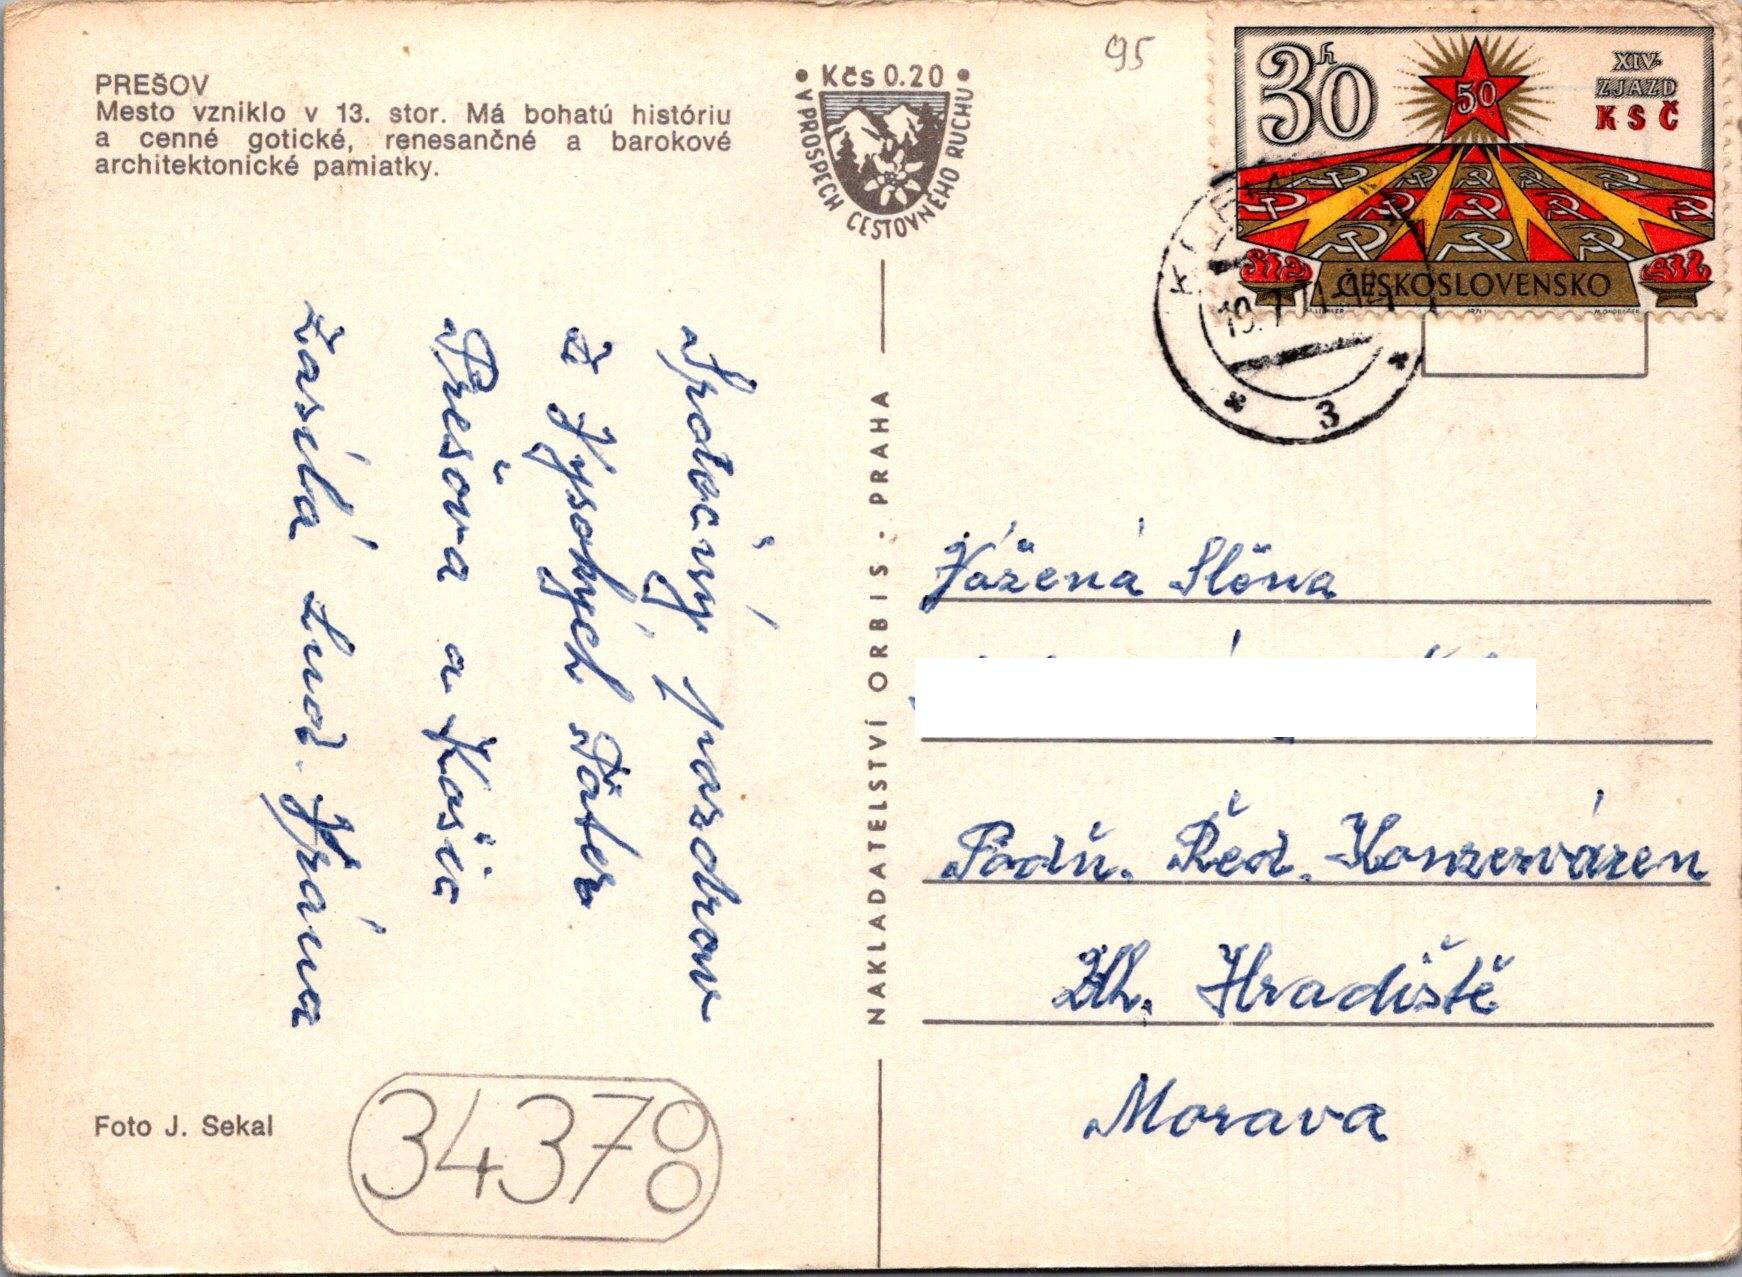 PREŠOV
Mesto vzniklo v 13. stor. Má bohatú históriu
a cenné gotické, renesančné a barokové
architektonické pamiatky.
• Kčs 0.20 •
V PROSPECH CESTOVNÉHO RUCHU
95
30h
50
XIV.
ZJAZD
KSČ
ČESKOSLOVENSKO
3
Srdečný pozdrav
z Vysokých Tater
Prešova a Košic
zasílá Lud. Vrána
NAKLADATELSTVÍ ORBIS - PRAHA
Vážená Slečna
Podn. Řed. Konzerváren
Uh. Hradiště
Morava
Foto J. Sekal
34378